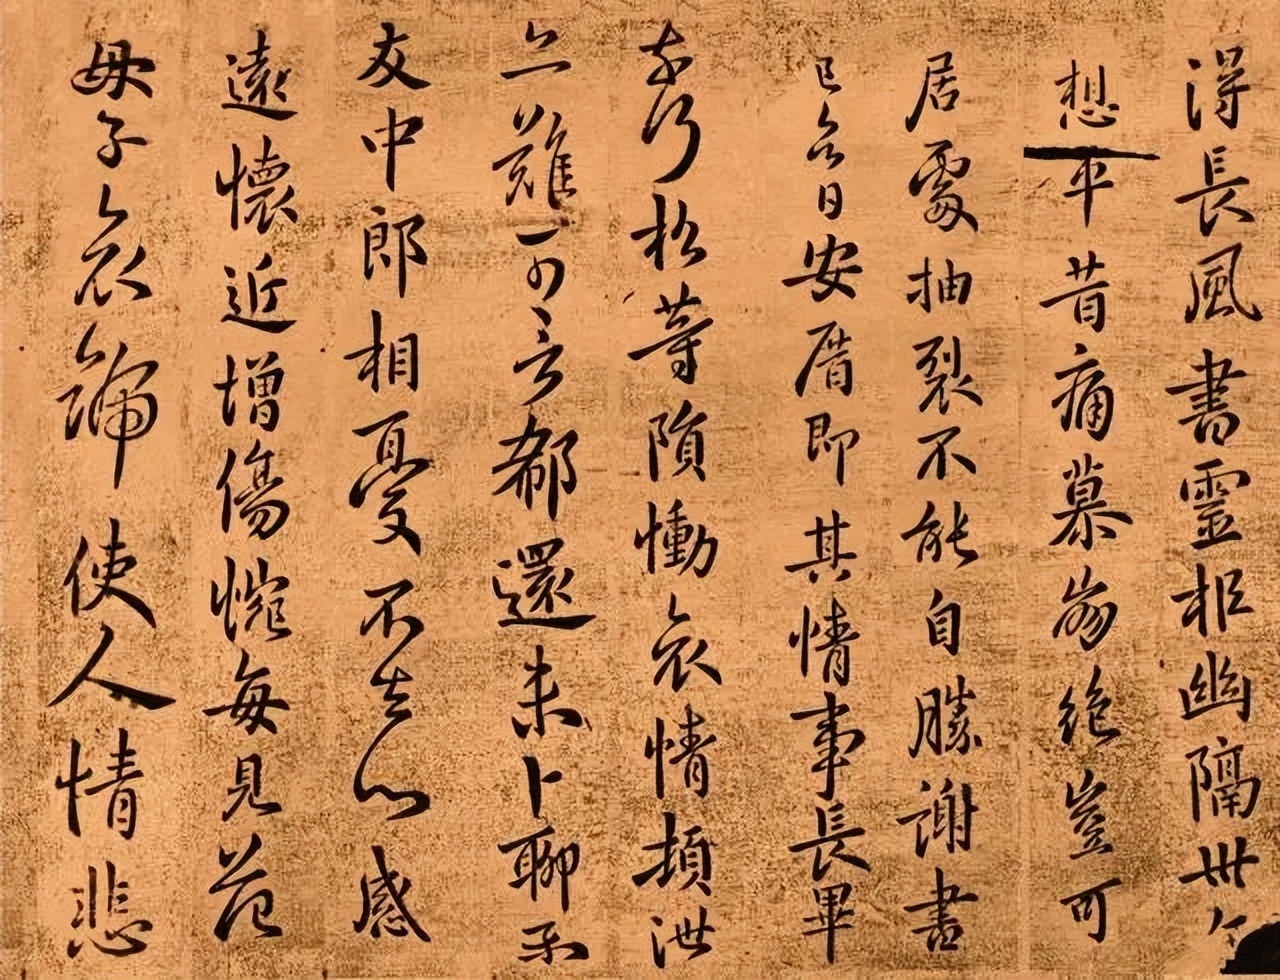 得長風書靈柩幽隔卅
想平昔痛慕崩絕豈可
居處抽裂不能自勝謝書
已今日安厝即其情事長畢
奈何松等隕慟哀情頓泄
亦難可言都還未卜聊示
友中郎相憂不去心感
遠懷近增傷惋每見范
母子哀號使人情悲